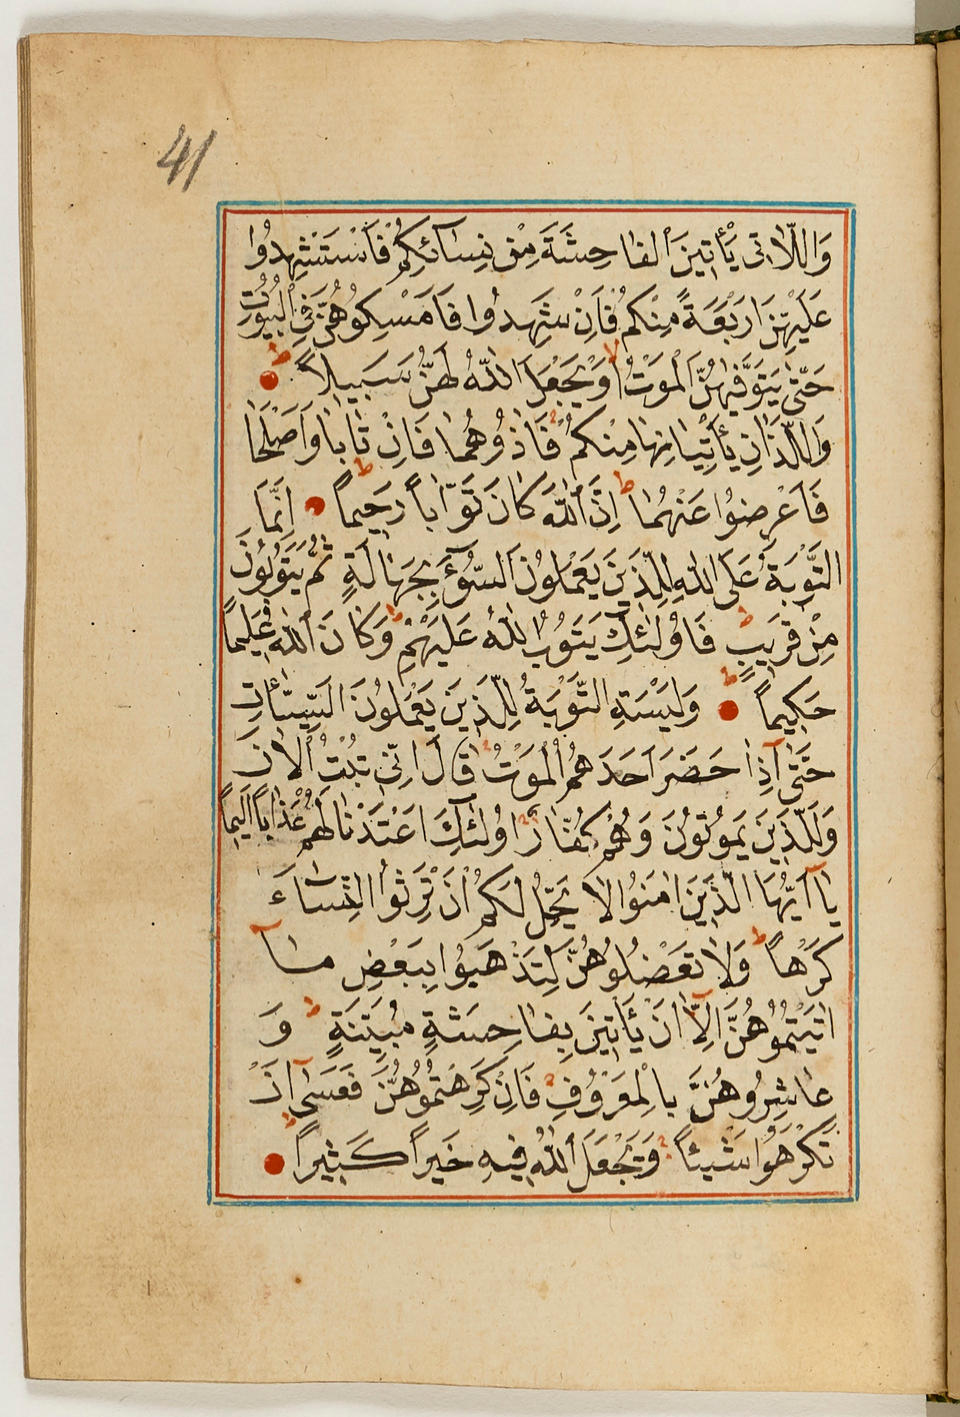 41
وَاللَّاتِى يَأْتِينَ الْفَاحِشَةَ مِنْ نِسَائِكُمْ فَاسْتَشْهِدُوا
عَلَيْهِنَّ اَرْبَعَةً مِنْكُمْ فَاِنْ شَهِدُوا فَاَمْسِكُوهُنَّ فِى الْبُيُوتِ
حَتّٰى يَتَوَفّٰيهُنَّ الْمَوْتُ اَوْ يَجْعَلَ اللّٰهُ لَهُنَّ سَبِيلاً
وَالَّلذَانِ يَأْتِيَانِهَا مِنْكُمْ فَاٰذُوهُمَا فَاِنْ تَابَا وَاَصْلَحَا
فَاَعْرِضُوا عَنْهُمَا ط اِنَّ اللّٰهَ كَانَ تَوَّاباً رَحِيماً اِنَّمَا
التَّوْبَةُ عَلَى اللّٰهِ لِلَّذِينَ يَعْمَلُونَ السُّوٓءَ بِجَهَالَةٍ ثُمَّ يَتُوبُونَ
مِنْ قَرِيبٍ ط فَاُولٰئِكَ يَتُوبُ اللّٰهُ عَلَيْهِمْ ط وَكَانَ اللّٰهُ عَلِيماً
حَكِيماً وَلَيْسَتِ التَّوْبَةُ لِلَّذِينَ يَعْمَلُونَ السَّيِّئَاتِ
حَتّٰىٓ اِذَا حَضَرَ اَحَدَهُمُ الْمَوْتُ قَالَ اِنِّى تُبْتُ الْاٰنَ
وَلَا الَّذِينَ يَمُوتُونَ وَهُمْ كُفَّارٌ اُولٰٓئِكَ اَعْتَدْنَا لَهُمْ عَذَاباً اَلِيماً
يَآ اَيُّهَا الَّذِينَ اٰمَنُوا لَا يَحِلُّ لَكُمْ اَنْ تَرِثُوا النِّسَاءَ
كَرْهاً ط وَلَا تَعْضُلُوهُنَّ لِتَذْهَبُوا بِبَعْضِ مَآ
اٰتَيْتُمُوهُنَّ اِلَّآ اَنْ يَأْتِينَ بِفَاحِشَةٍ مُبَيِّنَةٍ ط وَ
عَاشِرُوهُنَّ بِالْمَعْرُوفِ فَاِنْ كَرِهْتُمُوهُنَّ فَعَسٰىٓ اَنْ
تَكْرَهُوا شَيْئاً وَيَجْعَلَ اللّٰهُ فِيهِ خَيْراً كَثِيراً